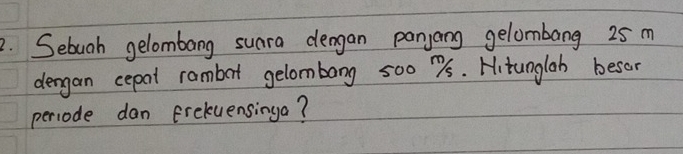 2. Sebuah gelombang suara dengan panjang gelombang 25 m
dengan cepat rambat gelombang 500 m/s. Hitunglah besar
periode dan frekuensinya?